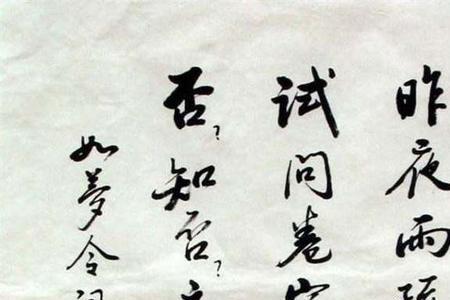 昨夜雨
试问卷
否?知否?
如夢令